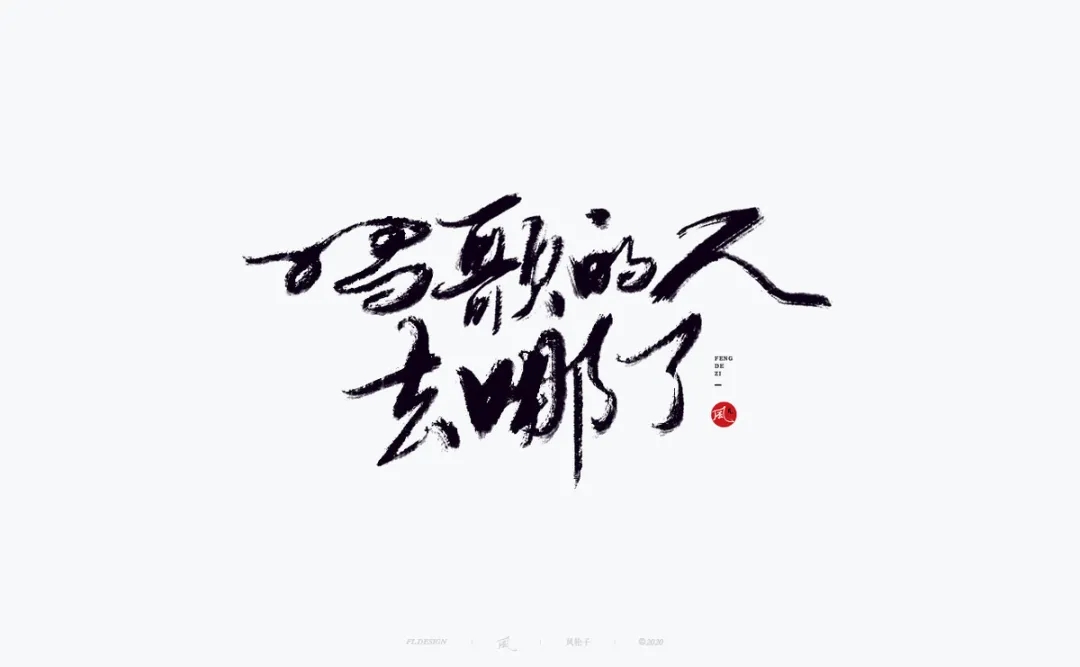 唱歌的人
去哪了
FENG
DE
ZI
風
FLDESIGN | 風 | 风轮子 | ©2020